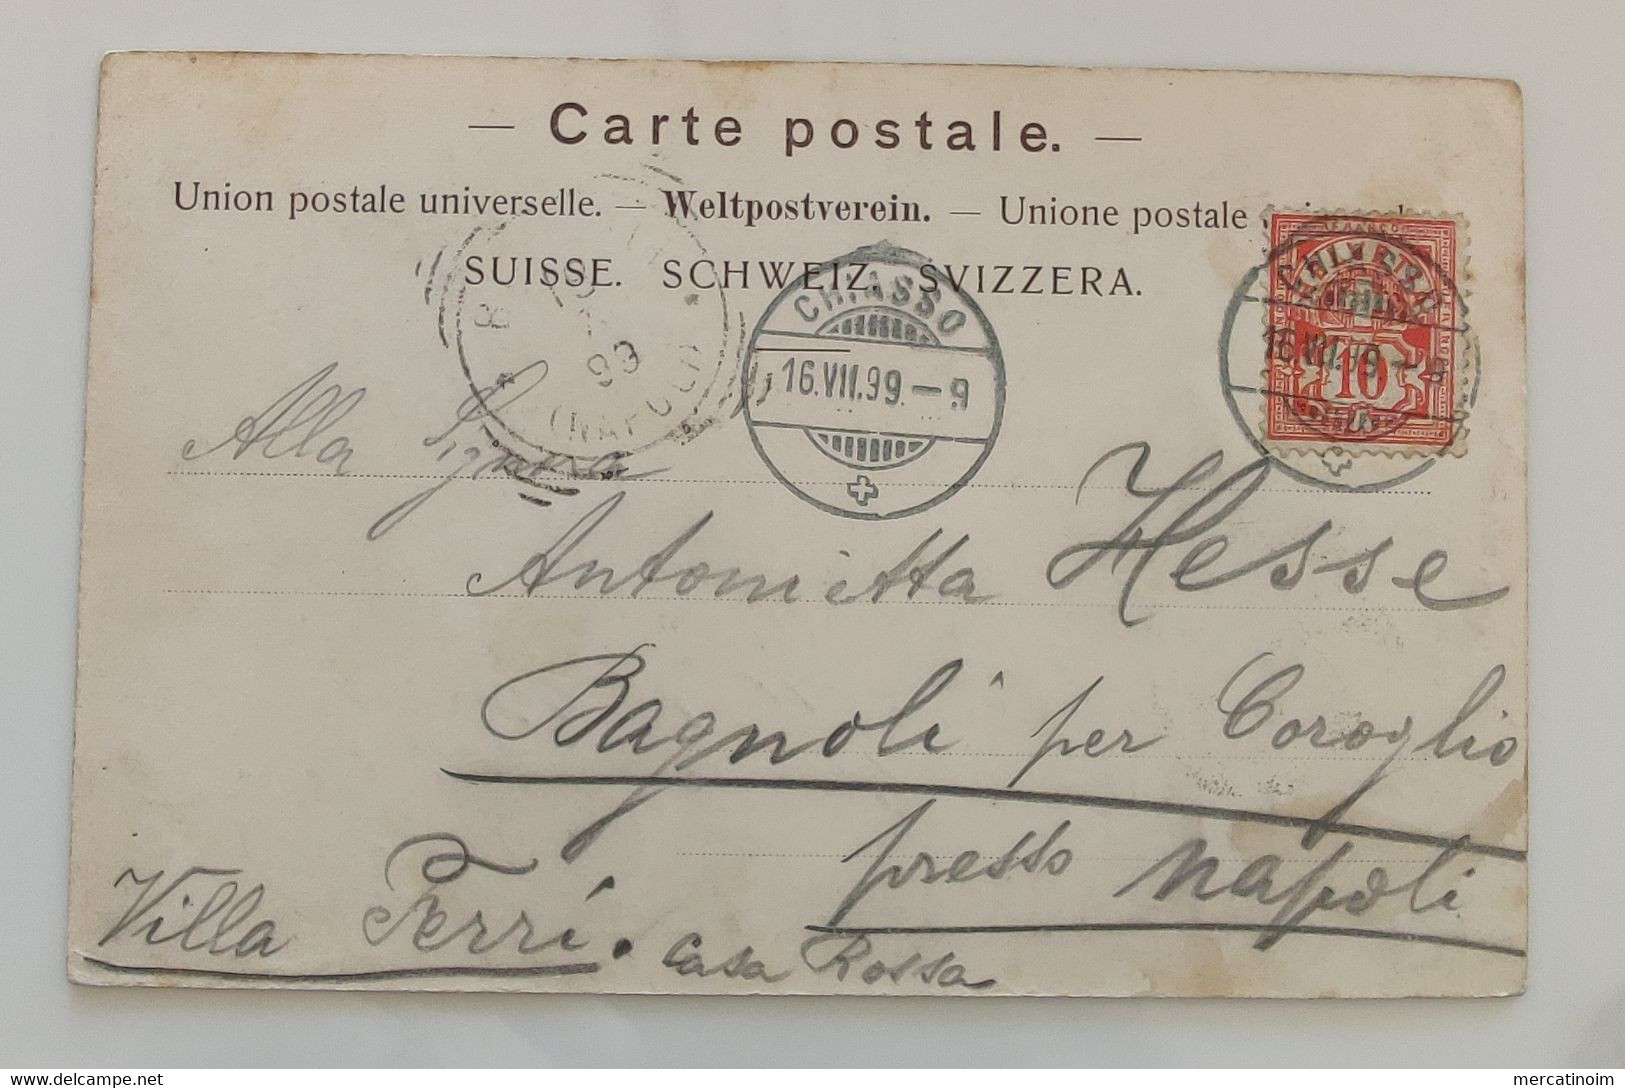 — Carte postale. —
Union postale universelle. — Weltpostverein. — Unione postale
SUISSE. SCHWEIZ. SVIZZERA.
CHIASSO
16.VII.99.–9
FRANCO
CHIASSO
16.VII.99–9
10
99
(NAPOLI)
Alla Signora
Antonietta Hesse
Bagnoli per Coroglio
presso Napoli
Villa Ferri. Casa Rossa
www.delcampe.net
mercatinoim